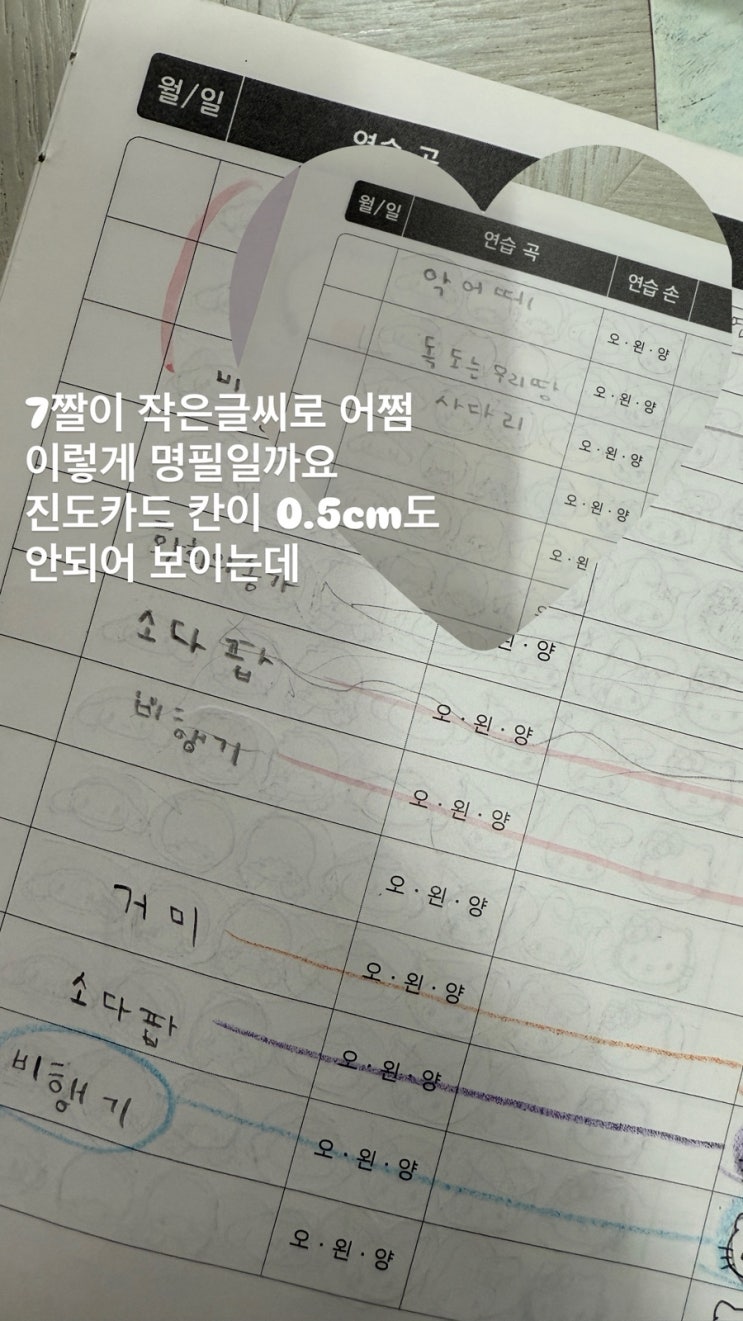 월/일
연습 곡
월/일
연습 곡
연습 손
악어떼
오·왼·양
독도는 우리땅
오·왼·양
사다리
오·왼·양
오·왼·양
오·왼
7짤이 작은글씨로 어쩜
이렇게 명필일까요
진도카드 칸이 0.5cm도
안되어 보이는데
소다 팝
오·왼·양
비행기
오·왼·양
오·왼·양
거미
오·왼·양
소다팝
오·왼·양
비행기
오·왼·양
오·왼·양